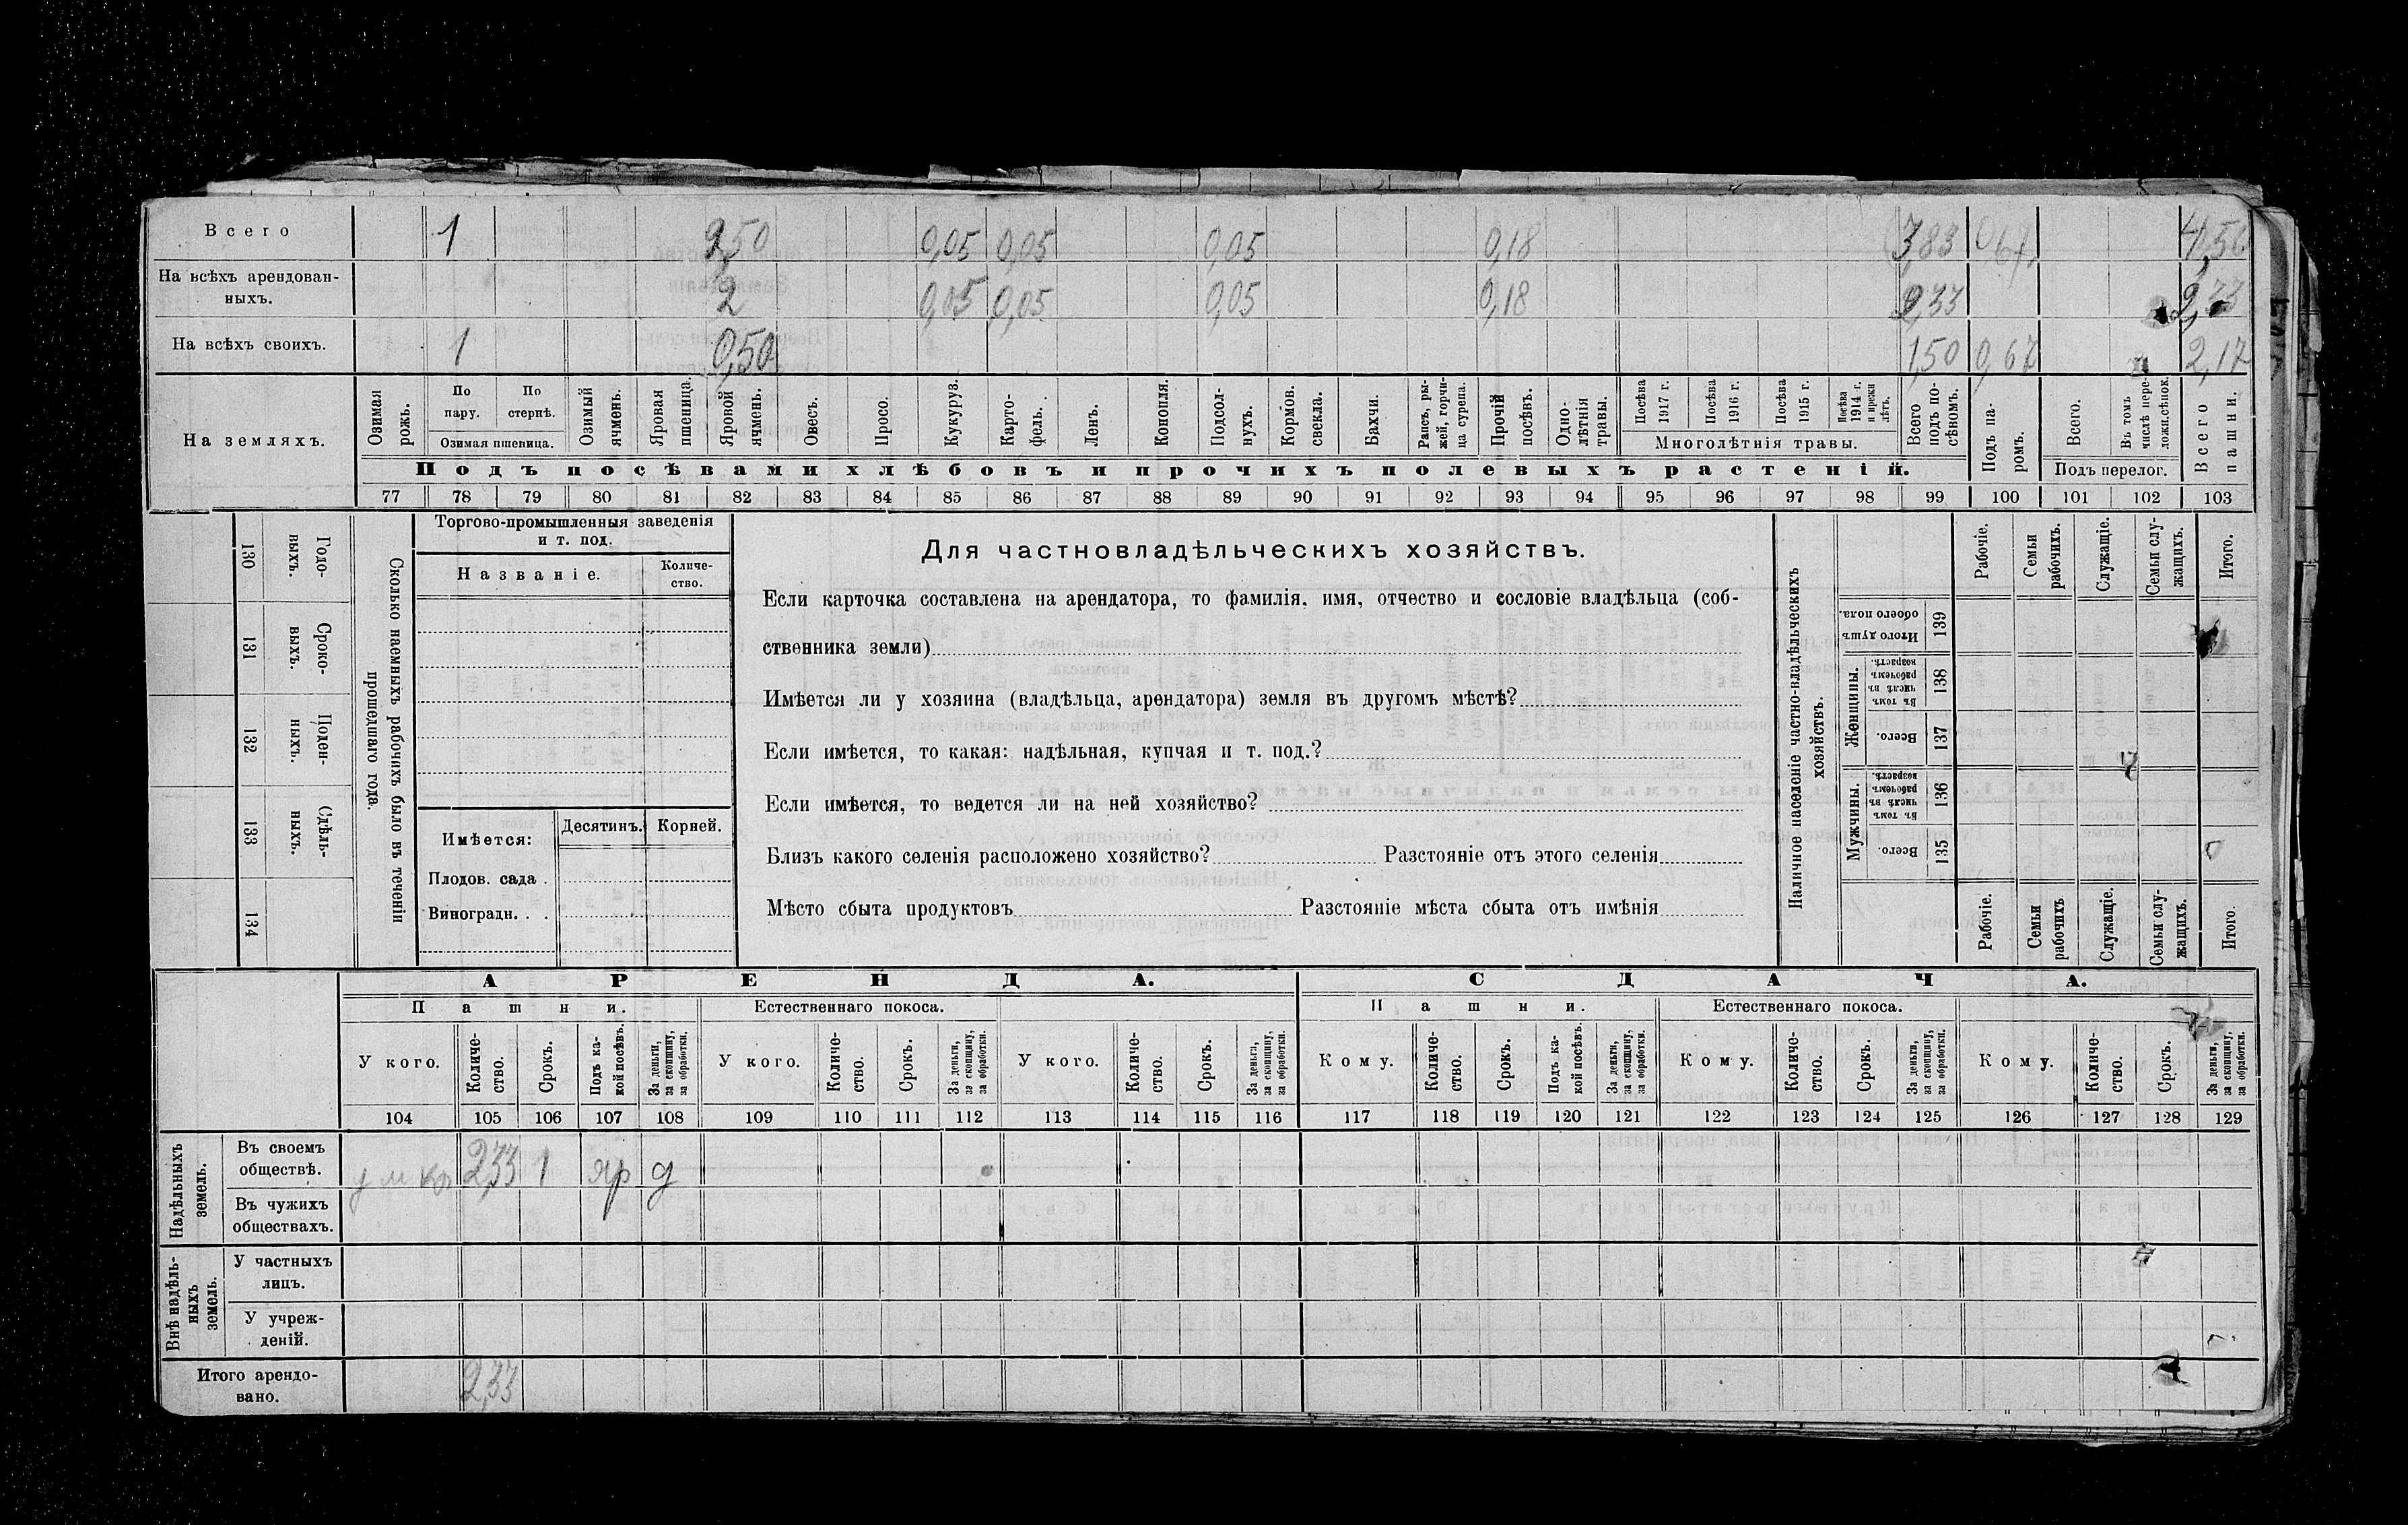 Всего 1 2,50 0,05 0,05 0,05 0,18 3,83 0,67
На всѣхъ арендован-
ныхъ. 2 0,05 0,05 0,05 0,18 2,33 2,33
На всѣхъ своихъ. 1 0,50 1,50 0,67 2,17
На земляхъ.
Озимая рожь.
По пару.
По стернѣ.
Озимая пшеница.
Озимый ячмень.
Яровая пшеница.
Яровой ячмень.
Овесъ.
Просо.
Кукуруз.
Карто-
фель.
Ленъ.
Конопля.
Подсол-
нухъ.
Кормов.
свекла.
Бахчи.
Рапсъ, ры-
жей, горчи-
ца сурепа.
Прочій
посѣвъ.
Одно-
лѣтнія
травы.
Посѣва
1917 г.
Посѣва
1916 г.
Посѣва
1915 г.
Посѣва
1914 г.
и прежн
лѣтъ.
Многолѣтнія травы.
Всего
подъ по-
сѣвомъ.
Подъ посѣвами хлѣбовъ и прочихъ полевыхъ растеній.
Подъ па-
ромъ.
Всего.
Въ томъ
числѣ пере-
ложн.сѣнок.
Подъ перелог.
Всего
пашни.
77 78 79 80 81 82 83 84 85 86 87 88 89 90 91 92 93 94 95 96 97 98 99 100 101 102 103
130
Годо-
выхъ.
131
Сроко-
выхъ.
132
Поден-
ныхъ.
133
Сдѣль-
ныхъ.
134
Сколько наемныхъ рабочихъ было въ теченіи
прошедшаго года.
Торгово-промышленныя заведенія
и т. под.
Названіе.
Количе-
ство.
Имѣется:
Десятинъ.
Корней.
Плодов. сада .
Виноградн. . .
Для частновладѣльческихъ хозяйствъ.
Если карточка составлена на арендатора, то фамилія, имя, отчество и сословіе владѣльца (соб-
ственника земли)
Имѣется ли у хозяина (владѣльца, арендатора) земля въ другомъ мѣстѣ?
Если имѣется, то какая: надѣльная, купчая и т. под.?
Если имѣется, то ведется ли на ней хозяйство?
Близъ какого селенія расположено хозяйство? Разстояніе отъ этого селенія
Мѣсто сбыта продуктовъ Разстояніе мѣста сбыта отъ имѣнія
Наличное населеніе частно-владѣльческихъ
хозяйствъ.
Рабочіе.
Семьи
рабочихъ.
Служащіе.
Семьи слу-
жащихъ.
Итого.
Итого душъ
обоего пола.
139
Женщины.
Въ томъ
числѣ въ
рабочемъ
возрастѣ.
138
Всего.
137
Мужчины.
Въ томъ
числѣ въ
рабочемъ
возрастѣ.
136
Всего.
135
Рабочіе.
Семьи
рабочихъ
Служащіе.
Семьи слу-
жащихъ.
Итого.
АРЕНДА. СДАЧА.
Пашни. Естественнаго покоса. Пашни. Естественнаго покоса.
У кого.
Количе-
ство.
Срокъ.
Подъ ка-
кой посѣвъ.
За деньги,
за скопщину,
за обработки.
У кого.
Количе-
ство.
Срокъ.
За деньги,
за скопщину,
за обработки.
У кого.
Количе-
ство.
Срокъ.
За деньги,
за скопщину,
за обработки.
Кому.
Количе-
ство.
Срокъ.
Подъ ка-
кой посѣвъ.
За деньги,
за скопщину,
за обработки.
Кому.
Количе-
ство.
Срокъ.
За деньги,
за скопщину,
за обработки.
Кому.
Количе-
ство.
Срокъ.
За деньги,
за скопщину,
за обработки.
104 105 106 107 108 109 110 111 112 113 114 115 116 117 118 119 120 121 122 123 124 125 126 127 128 129
Надѣльныхъ
земель.
Въ своемъ
обществѣ. 2,33 1 яр д
Въ чужихъ
обществахъ.
Внѣ надѣль-
ныхъ
земель.
У частныхъ
лицъ.
У учреж-
деній.
Итого арендо-
вано. 2,33